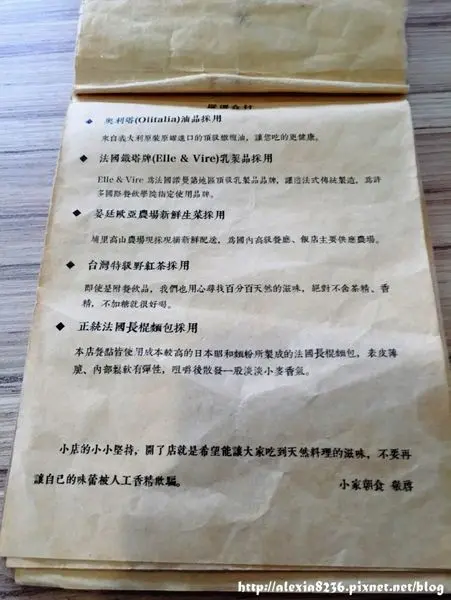 嚴選食材
◆ 奧利塔(Olitalia)油品採用
來自義大利原裝原罐進口的頂級橄欖油，讓您吃的更健康。
◆ 法國鐵塔牌(Elle & Vire)乳製品採用
Elle & Vire 為法國諾曼第地區頂級乳製品品牌，謹遵法式傳統製造，為許
多國際餐飲學院指定使用品牌。
◆ 宴廷歐亞農場新鮮生菜採用
埔里高山農場現採現摘新鮮配送，為國內高級餐廳、飯店主要供應農場。
◆ 台灣特級野紅茶採用
即使是附餐飲品，我們也用心尋找百分百天然的滋味，絕對不含茶精、香
精，不加糖就很好喝。
◆ 正統法國長棍麵包採用
本店餐點皆使用成本較高的日本昭和麵粉所製成的法國長棍麵包，表皮薄
脆、內部鬆軟有彈性，咀嚼後散發一股淡淡小麥香氣。
小店的小小堅持，開了店就是希望能讓大家吃到天然料理的滋味，不要再
讓自己的味蕾被人工香精欺騙。
小家朝食 敬啓
http://alexia8236.pixnet.net/blog